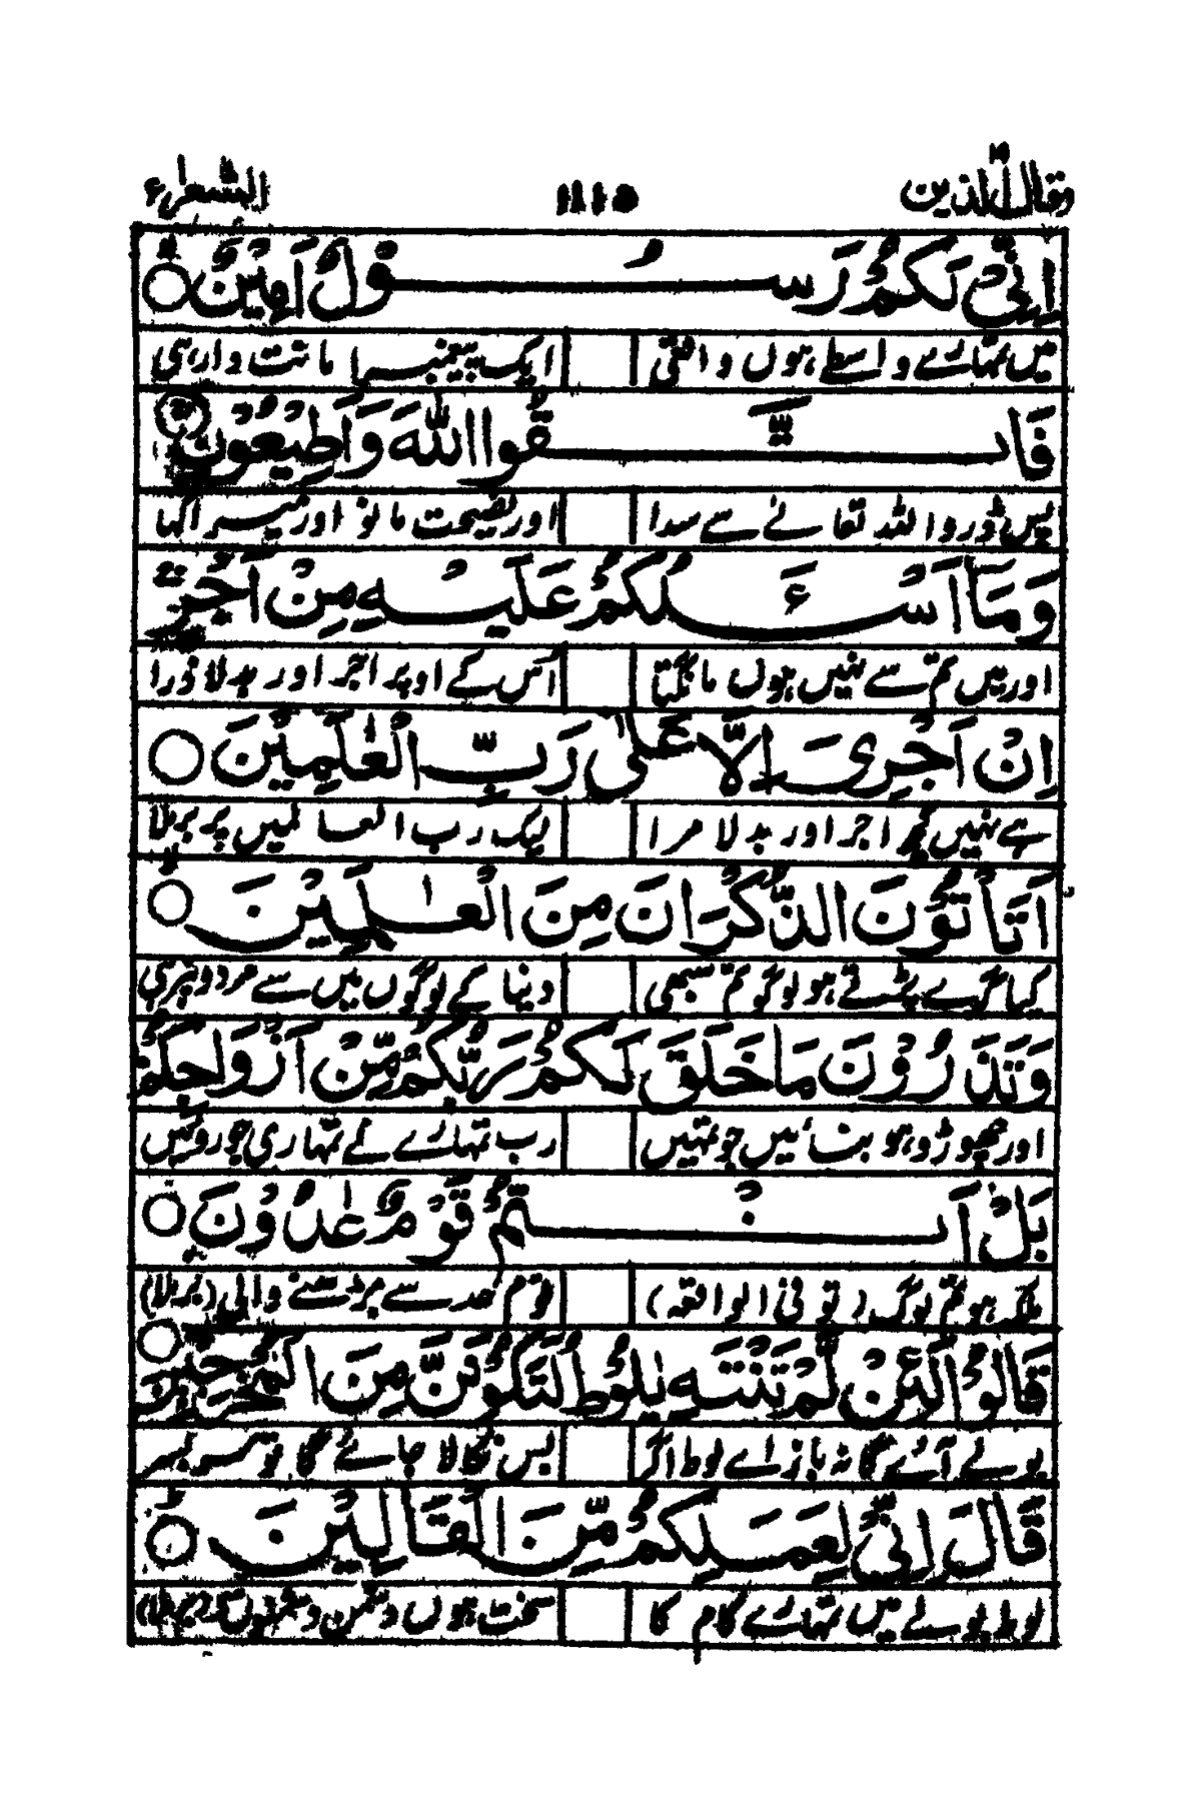 وقال الذین ۱۹ ۱۸۱۵ الشعراء
اِنِّیْ لَکُمْ رَسُوْلٌ اَمِیْنٌ
میں تمہارے واسطے ہوں واقعی ایک پیغمبر امانت وار ہی
فَاتَّقُوا اللّٰہَ وَاَطِیْعُوْنِ
پس ڈرو اللہ تعالےٰ سے سدا اور نصیحت مانو اور میرا کہا
وَمَآ اَسْئَلُکُمْ عَلَیْہِ مِنْ اَجْرٍ
اور میں تم سے نہیں ہوں مانگتا اس کے اوپر اجر اور بدلا ذرا
اِنْ اَجْرِیَ اِلَّا عَلٰی رَبِّ الْعٰلَمِیْنَ
ہے نہیں کچھ اجر اور بدلا مرا لیک رب العالمیں پر برملا
اَتَاْتُوْنَ الذُّکْرَانَ مِنَ الْعٰلَمِیْنَ
کیا گرے پڑتے ہو لوگو تم سبھی دنیا کے لوگوں میں سے مردو پر ہی
وَتَذَرُوْنَ مَا خَلَقَ لَکُمْ رَبُّکُمْ مِّنْ اَزْوَاجِکُمْ
اور چھوڑو ہو بنائیں جو تمہیں رب تمہارے نے تمہاری جوروئیں
بَلْ اَنْتُمْ قَوْمٌ عٰدُوْنَ
بلکہ ہو تم لوگ (تو فی الواقعہ) قوم حد سے بڑھنے والی (برملا)
قَالُوْا لَئِنْ لَّمْ تَنْتَہِ یٰلُوْطُ لَتَکُوْنَنَّ مِنَ الْمُخْرَجِیْنَ
بولے آئے گا نہ باز اے لوط اگر بس نکالا جائے گا تو سربسر
قَالَ اِنِّیْ لِعَمَلِکُمْ مِّنَ الْقَالِیْنَ
لوط بولے میں تمہارے کام کا سخت ہوں دشمن